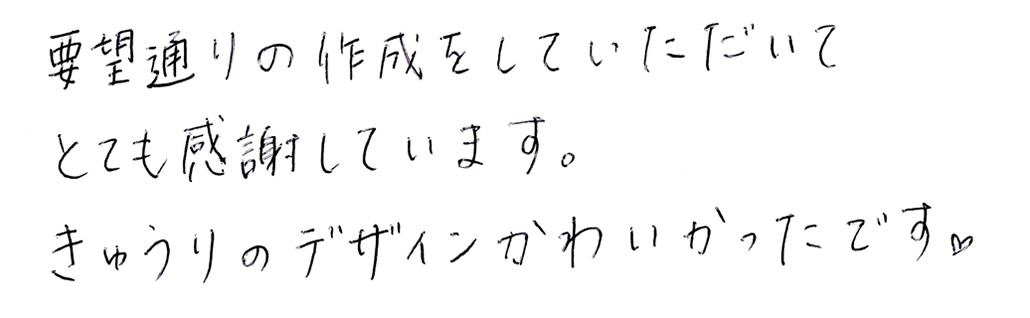 要望通りの作成をしていただいて
とても感謝しています。
きゅうりのデザインかわいかったです♡